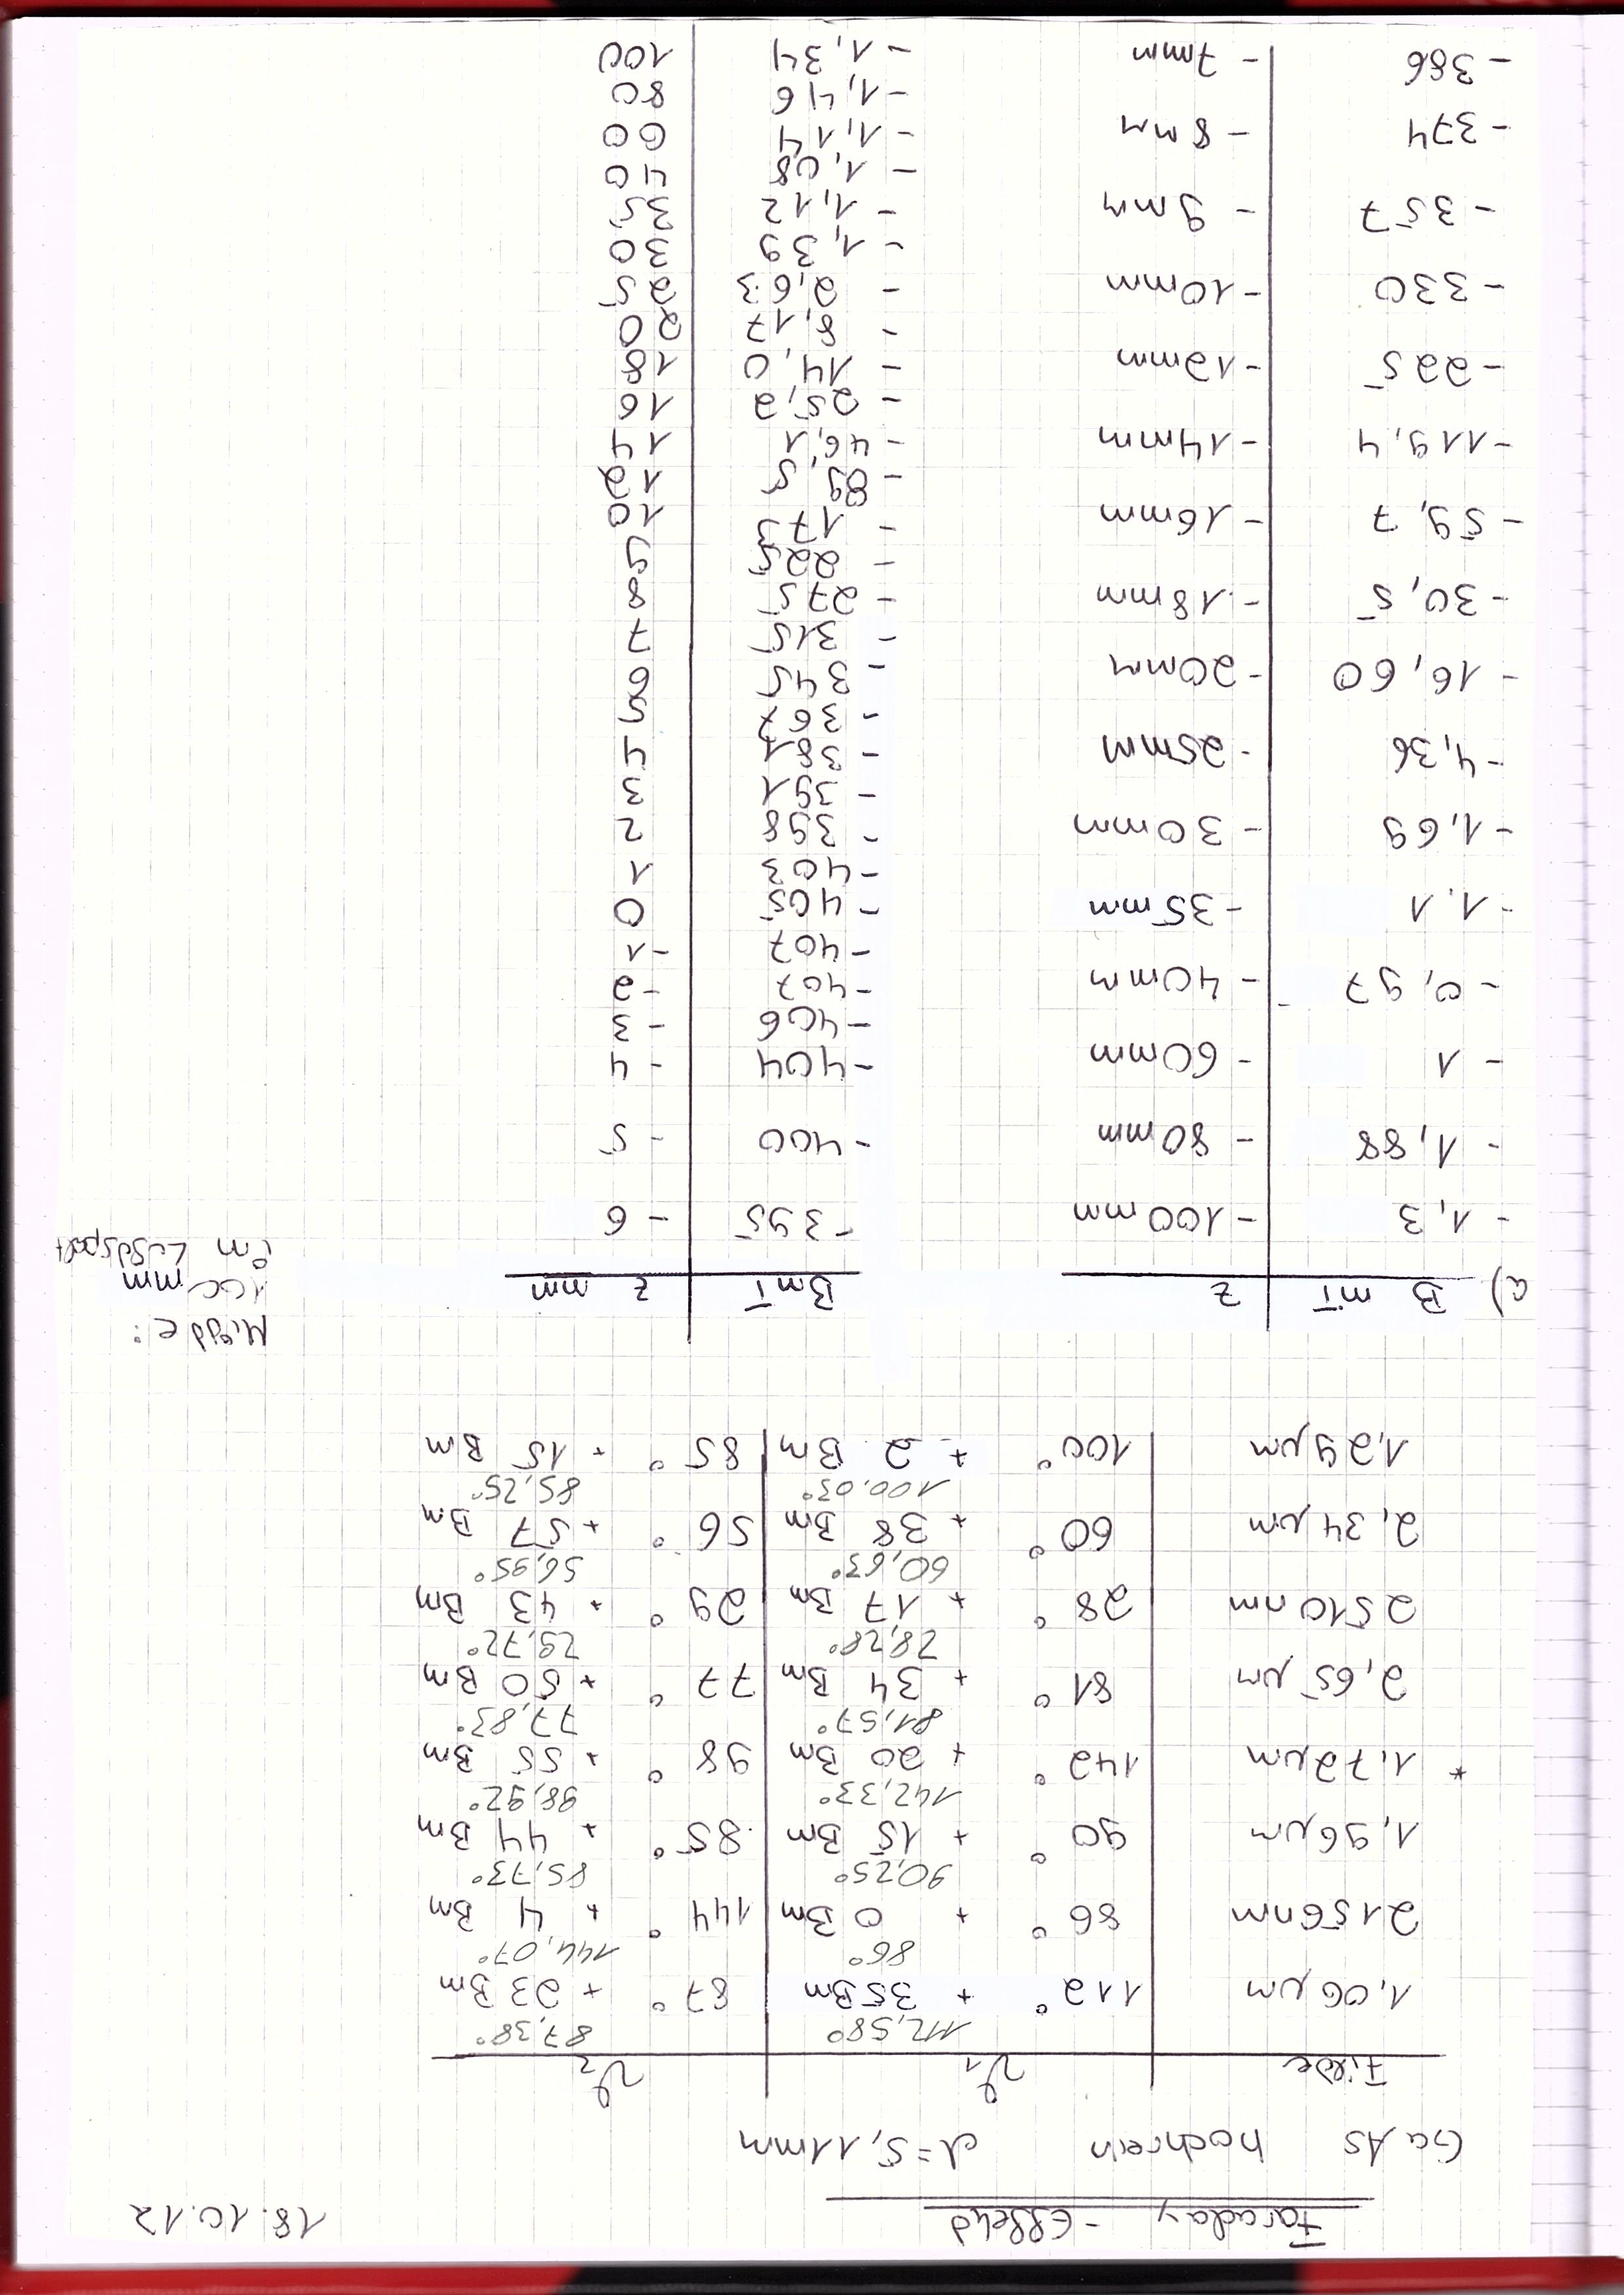 Faraday - Effekt 18.10.12
GaAs hochrein d = 5,11mm
Filter ϑ1 ϑ2
112,58° 87,38°
1,06 µm 112° + 35 Bm 87° + 23 Bm
86° 144,07°
2156nm 86° + 0 Bm 144° + 4 Bm
90,25° 85,73°
1,96µm 90° + 15 Bm 85° + 44 Bm
142,33° 98,92°
* 1,72µm 142° + 20 Bm 98° + 55 Bm
81,57° 77,83°
2,65 µm 81° + 34 Bm 77° + 50 Bm
28,28° 29,72°
2510nm 28° + 17 Bm 29° + 43 Bm
60,63° 56,95°
2,34µm 60° + 38 Bm 56° + 57 Bm
100,03° 85,25°
1,29µm 100° + 2 Bm 85° + 15 Bm
Mitte:
100mm
im Luftspalt
a) B mT z
- 1,3 - 100mm
- 1,88 - 80mm
- 1 - 60mm
- 0,97 - 40mm
- 1,1 - 35mm
- 1,69 - 30mm
- 4,36 - 25mm
- 16,60 - 20mm
- 30,5 - 18mm
- 59,7 - 16mm
- 119,4 - 14mm
- 225 - 12mm
- 330 - 10mm
- 357 - 9mm
- 374 - 8mm
- 386 - 7mm
B mT z mm
- 395 - 6
- 400 - 5
- 404 - 4
- 406 - 3
- 407 - 2
- 407 - 1
- 405 0
- 403 1
- 398 2
- 391 3
- 381 4
- 367 5
- 345 6
- 315 7
- 275 8
- 225 9
- 173 10
- 89,5 12
- 46,1 14
- 25,2 16
- 14,0 18
- 8,17 20
- 2,63 25
- 1,39 30
- 1,12 35
- 1,08 40
- 1,14 60
- 1,46 80
- 1,34 100